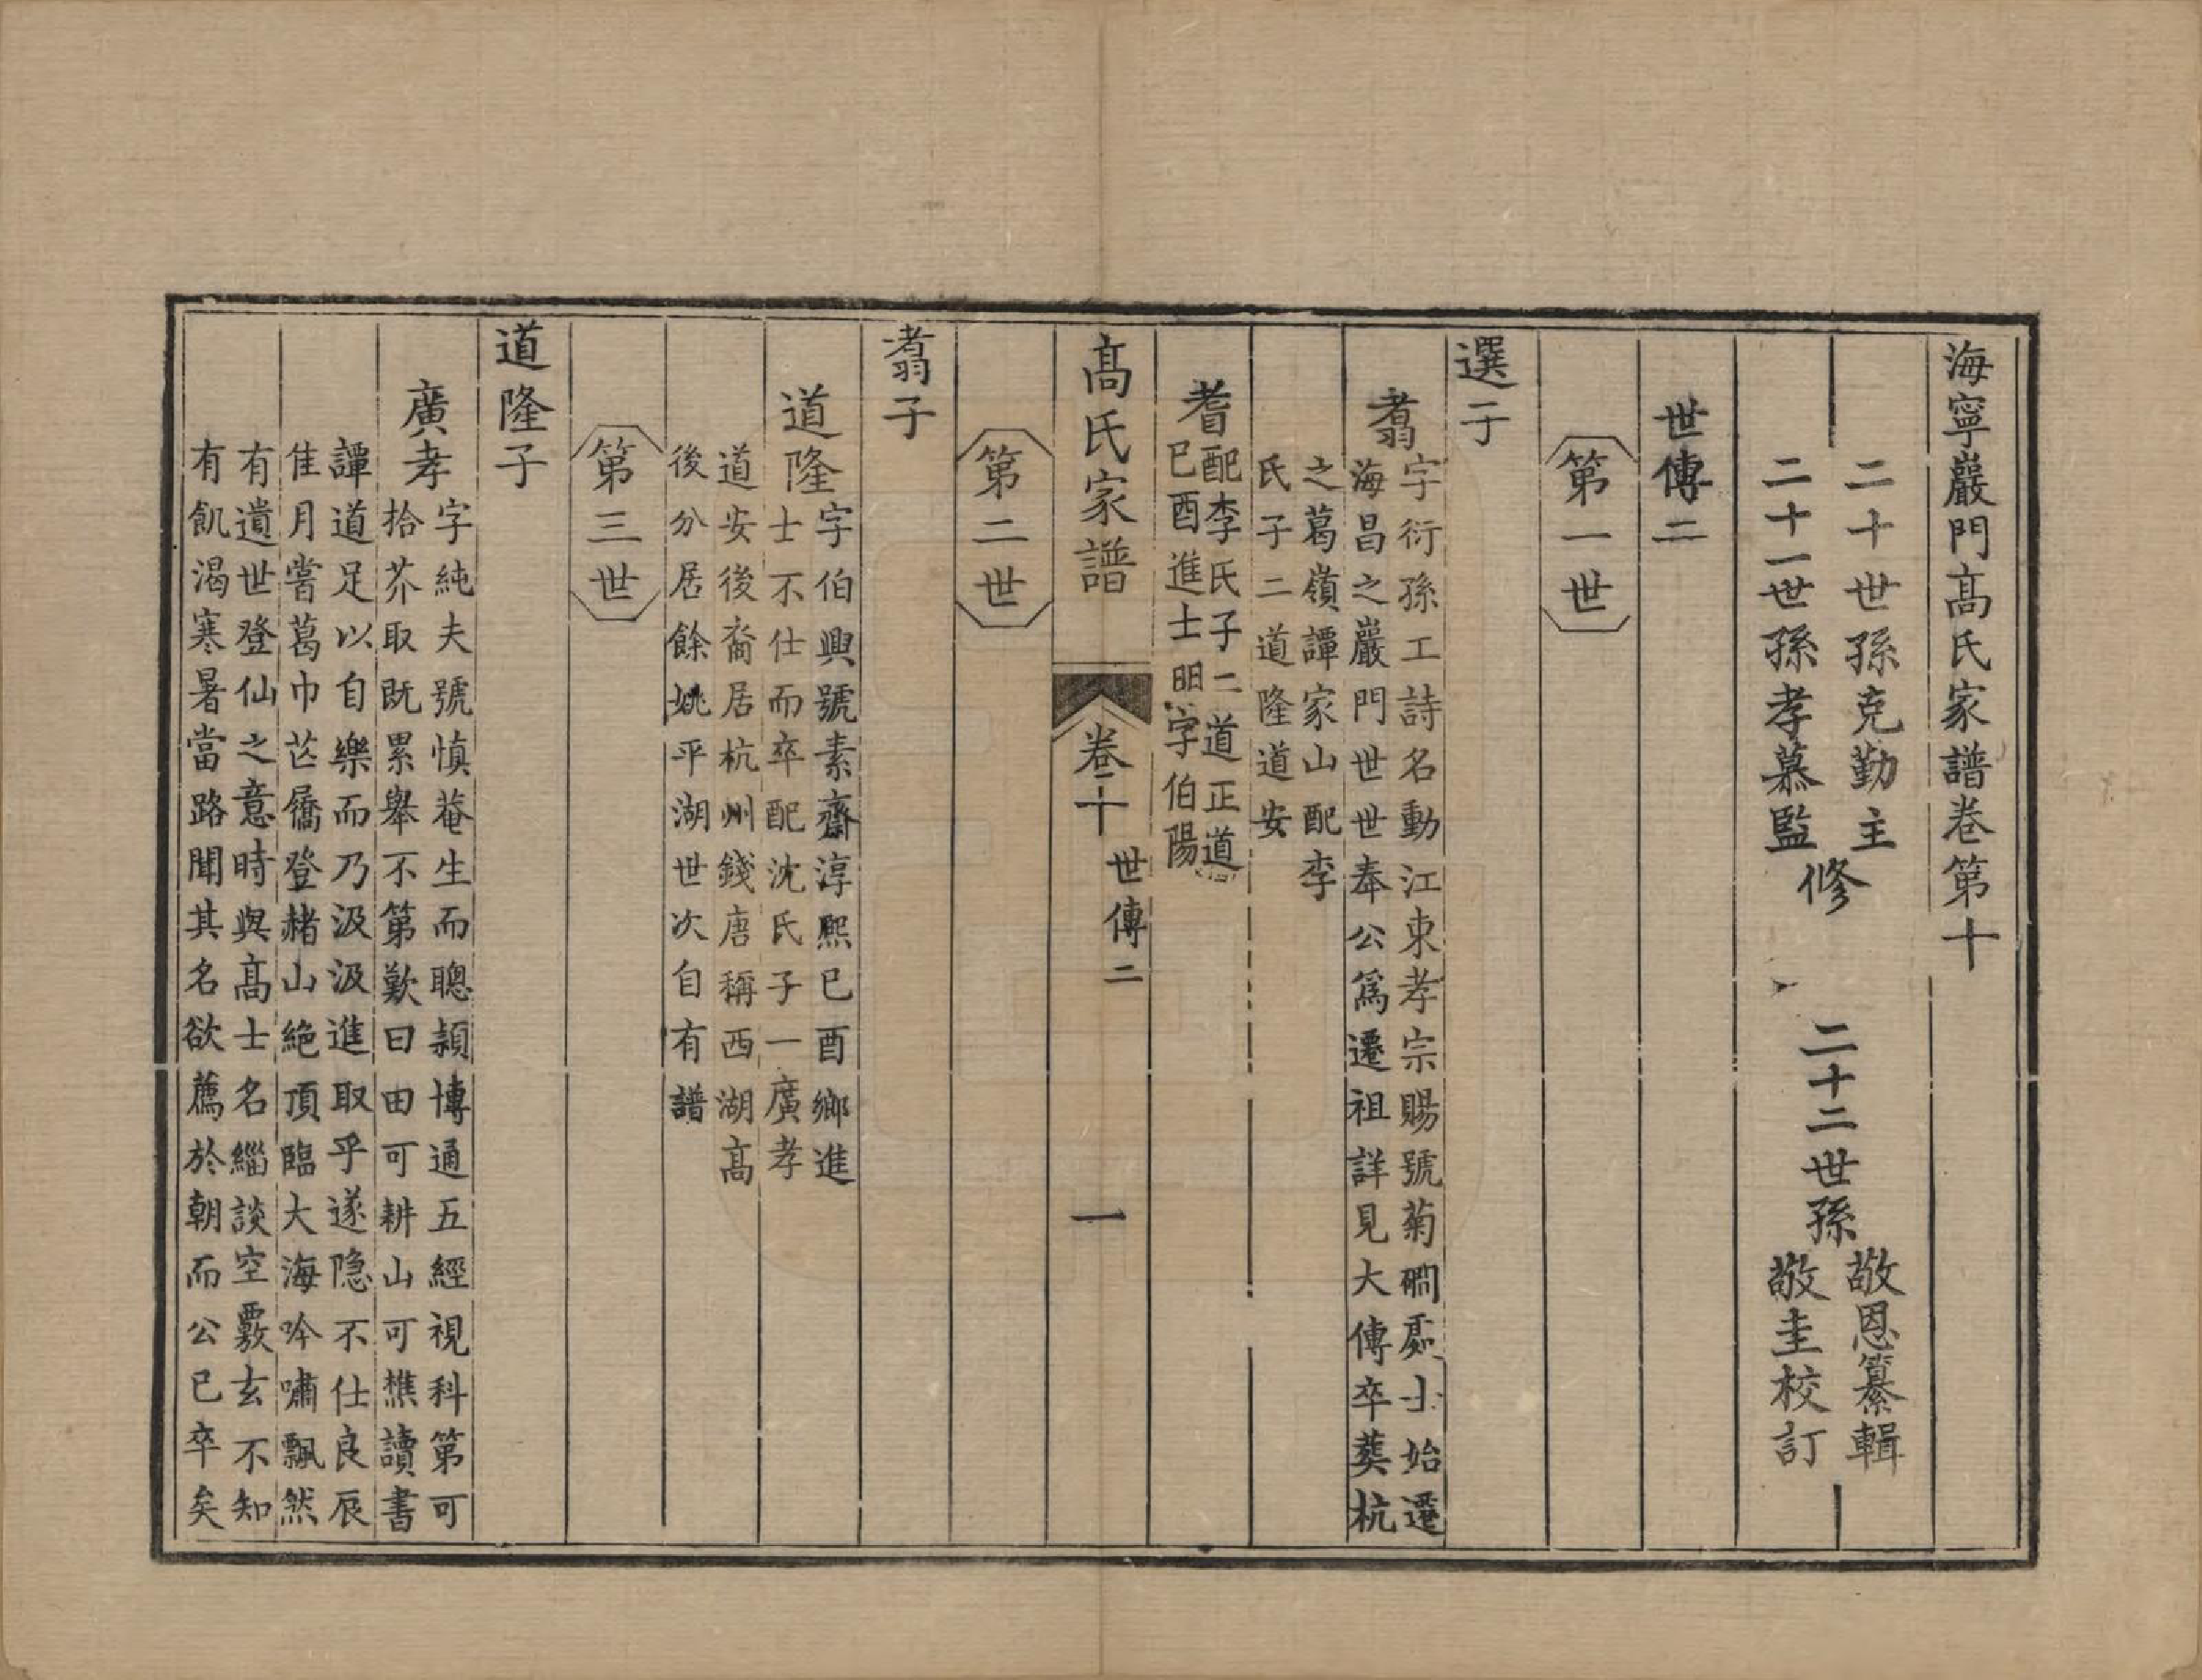 海寧巖門高氏家譜卷第十
二十世孫克勤主
二十一世孫孝慕監
修
二十二世孫
敬恩纂輯
敬圭校訂
世傳二
第一世
選子
翥
字衍孫工詩名動江東孝宗賜號菊磵處士始遷
海昌之巖門世世奉公爲遷祖詳見大傳卒葬杭
之葛嶺譚家山配李
氏子二道隆道安
耆
配李氏子二道正道
明字伯陽
己酉進士
高氏家譜
卷十
世傳二
一
第二世
翥子
道隆
字伯興號素齋淳熙己酉鄉進
士不仕而卒配沈氏子一廣孝
道安後裔居杭州錢唐稱西湖高
後分居餘姚平湖世次自有譜
第三世
道隆子
廣孝
字純夫號慎菴生而聰穎博通五經視科第可
拾芥取既累舉不第歎曰田可耕山可樵讀書
譚道足以自樂而乃汲汲進取乎遂隱不仕良辰
佳月嘗葛巾芒屩登赭山絶頂臨大海吟嘯飄然
有遺世登仙之意時與高士名緇談空覈玄不知
有飢渴寒暑當路聞其名欲薦於朝而公已卒矣